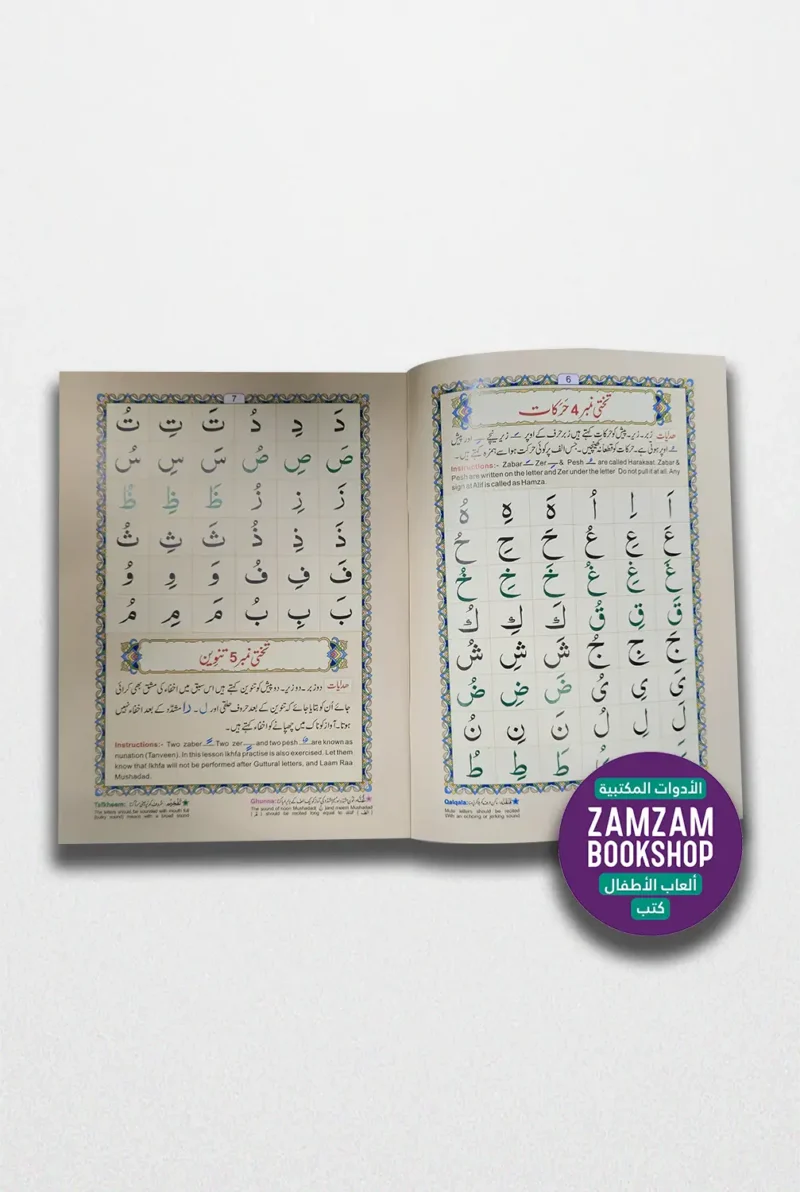 6
تختی نمبر 4 حَرَکات
ھدایات زبر۔ زیر۔ پیش کو حرکات کہتے ہیں زبر حرف کے اوپر زیر نیچے اور پیش
اوپر ہوتی ہے۔ حرکات کو قطعاً نہ کھینچیں۔ جس الف پر کوئی حرکت ہو اسے ہمزہ کہتے ہیں۔
Instructions:- Zabar َ Zer ِ & Pesh ُ are called Harakaat. Zabar &
Pesh are written on the letter and Zer under the letter Do not pull it at all. Any
sign at Alif is called as Hamza.
اَ اِ اُ هَ هِ هُ
عَ عِ عُ حَ حِ حُ
غَ غِ غُ خَ خِ خُ
قَ قِ قُ كَ كِ كُ
جَ جِ جُ شَ شِ شُ
یَ یِ یُ ضَ ضِ ضُ
لَ لِ لُ نَ نِ نُ
طَ طِ طُ
Qalqala:
Mute letters should be recited
With an echoing or jerking sound
7
دَ دِ دُ تَ تِ تُ
صَ صِ صُ سَ سِ سُ
زَ زِ زُ ظَ ظِ ظُ
ذَ ذِ ذُ ثَ ثِ ثُ
فَ فِ فُ وَ وِ وُ
بَ بِ بُ مَ مِ مُ
تختی نمبر 5 تنوین
ھدایات دوزبر۔ دوزیر۔ دوپیش کو تنوین کہتے ہیں اس سبق میں اخفاء کی مشق بھی کرائی
جائے اُن کو بتایا جائے کہ تنوین کے بعد حروف حلقی اور ل۔ را مشدّد کے بعد اخفاء نہیں
ہوتا۔ آواز کو ناک میں چھپانے کو اخفاء کہتے ہیں۔
Instructions:- Two zaber ً Two zer ٍ and two pesh ٌ are known as
nunation (Tanveen). In this lesson Ikhfa practise is also exercised. Let them
know that Ikhfa will not be performed after Guttural letters, and Laam Raa
Mushadad.
Ghunna:
The sound of noon Mushadad
should be recited long equal to alaf
Tafkheem:
الأدوات المكتبية
ZAMZAM
BOOKSHOP
ألعاب الأطفال
كتب